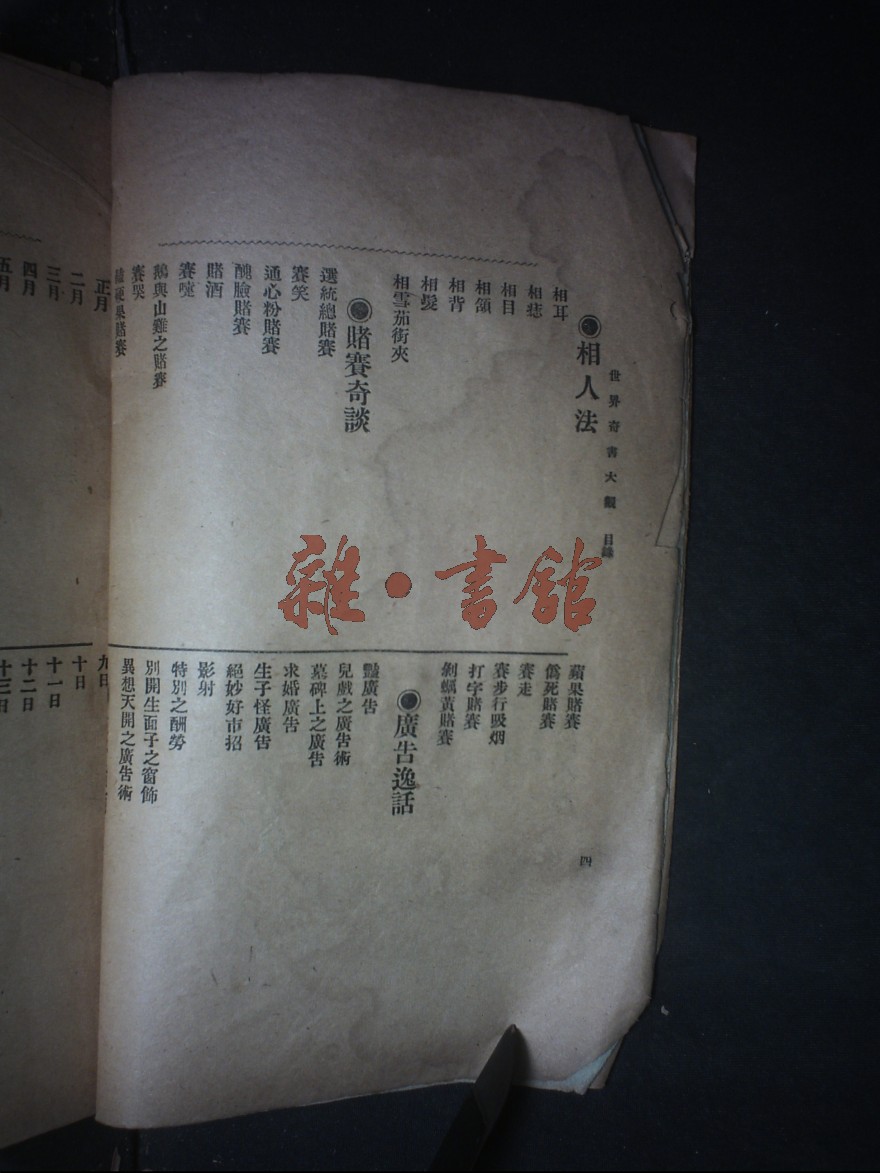 世界奇書大觀 目錄
四
◉相人法
相耳
相痣
相目
相頷
相背
相髮
相雪茄銜夾
◉賭賽奇談
選統總賭賽
賽笑
通心粉賭賽
醜臉賭賽
賭酒
賽嚏
鵝與山雞之賭賽
賽哭
硬果賭賽
蘋果賭賽
僞死賭賽
賽走
賽步行吸烟
打字賭賽
剝蠣黃賭賽
◉廣告逸話
豔廣告
兒戲之廣告術
墓碑上之廣告
求婚廣告
生子怪廣告
絕妙好市招
影射
特別之酬勞
別開生面子之窗飾
異想天開之廣告術
正月
二月
三月
四月
五月
九日
十日
十一日
十二日
十三日
雜·書館